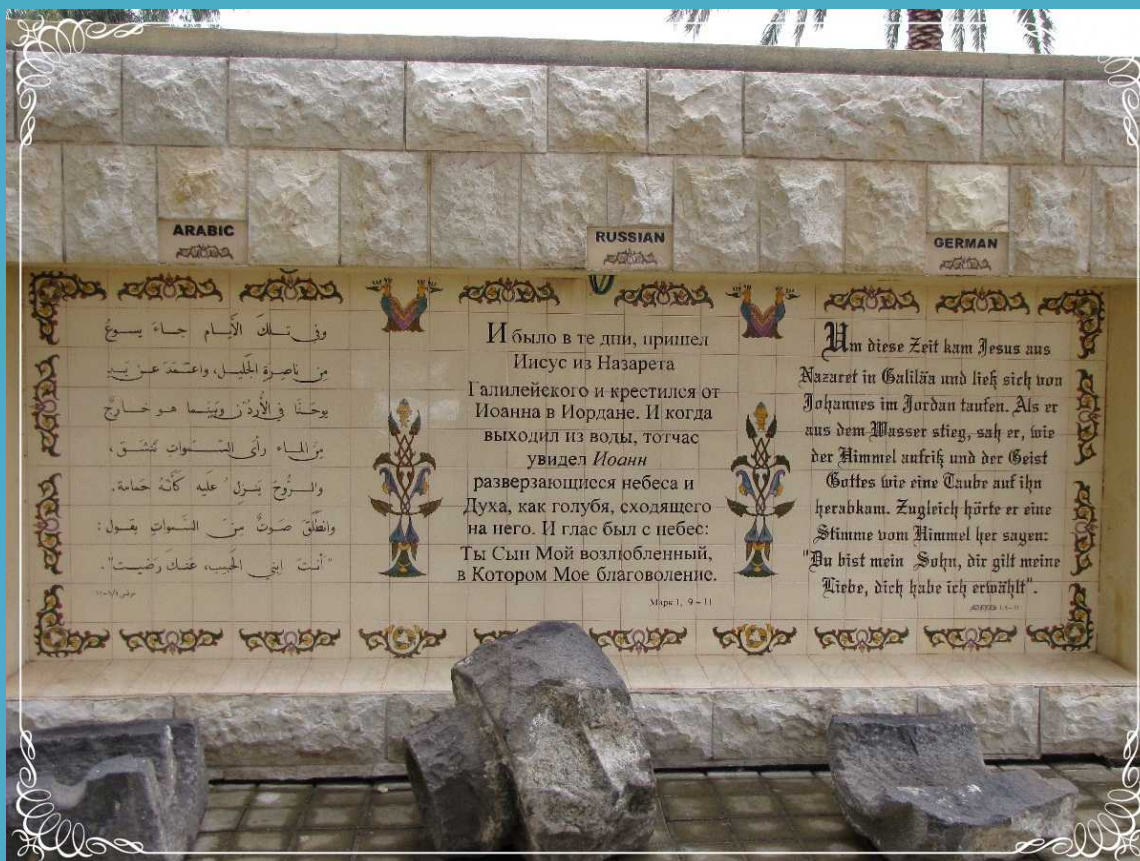 ARABIC
وفي تلك الأيام جاء يسوعُ
مِن ناصِرةِ الجَليل، واعتَمَدَ عن يَدِ
يوحَنَّا في الأُردُنّ وبَينَما هو خارِجٌ
مِنَ الماء رأى السَّمَواتِ تَنْشَقّ،
والرُّوحَ يَنزِلُ عليه كأنَّهُ حَمامة.
وانطَلَقَ صَوتٌ مِنَ السَّمَواتِ يقول:
"أنتَ ابني الحَبيب، عَنكَ رَضيت".
RUSSIAN
И было в те дни, пришел
Иисус из Назарета
Галилейского и крестился от
Иоанна в Иордане. И когда
выходил из воды, тотчас
увидел Иоанн
разверзающиеся небеса и
Духа, как голубя, сходящего
на него. И глас был с небес:
Ты Сын Мой возлюбленный,
в Котором Мое благоволение.
Марк 1, 9-11
GERMAN
Um diese Zeit kam Jesus aus
Nazaret in Galiläa und ließ sich von
Johannes im Jordan taufen. Als er
aus dem Wasser stieg, sah er, wie
der Himmel aufriß und der Geist
Gottes wie eine Taube auf ihn
herabkam. Zugleich hörte er eine
Stimme vom Himmel her sagen:
"Du bist mein Sohn, dir gilt meine
Liebe, dich habe ich erwählt".